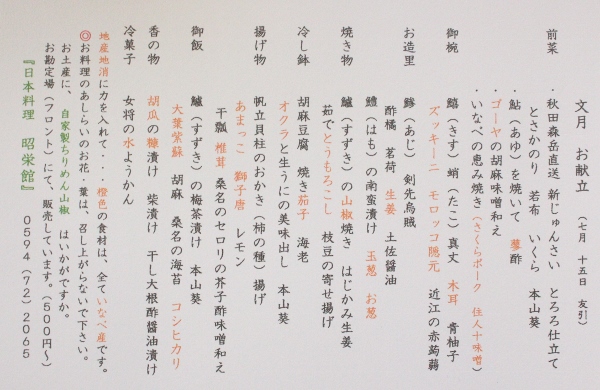 文月　お献立　（七月　十五日　友引）
前菜　・秋田森岳直送 新じゅんさい　とろろ仕立て
とさかのり　若布　いくら　本山葵
・鮎（あゆ）を焼いて　蓼酢
・ゴーヤの胡麻味噌和え
・いなべの恵み焼き（さくらポーク　住人十味噌）
御椀　鱚（きす）蛸（たこ）真丈　木耳　青柚子
ズッキーニ　モロッコ隠元　近江の赤蒟蒻
お造里　鯵（あじ）　剣先烏賊
酢橘　茗荷　生姜　土佐醤油
鱧（はも）の南蛮漬け　玉葱　お葱
焼き物　鱸（すずき）の山椒焼き　はじかみ生姜
茹でとうもろこし　枝豆の寄せ揚げ
冷し鉢　胡麻豆腐　焼き茄子　海老
オクラと生うにの美味出し　本山葵
揚げ物　帆立貝柱のおかき（柿の種）揚げ
あまっこ　獅子唐　レモン
干瓢　椎茸　桑名のセロリの芥子酢味噌和え
御飯　鱸（すずき）の梅茶漬け　本山葵
大葉紫蘇　胡麻　桑名の海苔　コシヒカリ
香の物　胡瓜の糠漬け　柴漬け　干し大根酢醤油漬け
冷菓子　女将の水ようかん
地産地消に力を入れて・・・橙色の食材は、全ていなべ産です。
◎お料理のあしらいのお花・葉は、召し上がらないで下さい。
お土産に、　自家製ちりめん山椒　はいかがですか。
お勘定場（フロント）にて、販売しています。（５００円～）
『日本料理　昭栄館』　０５９４（７２）２０６５